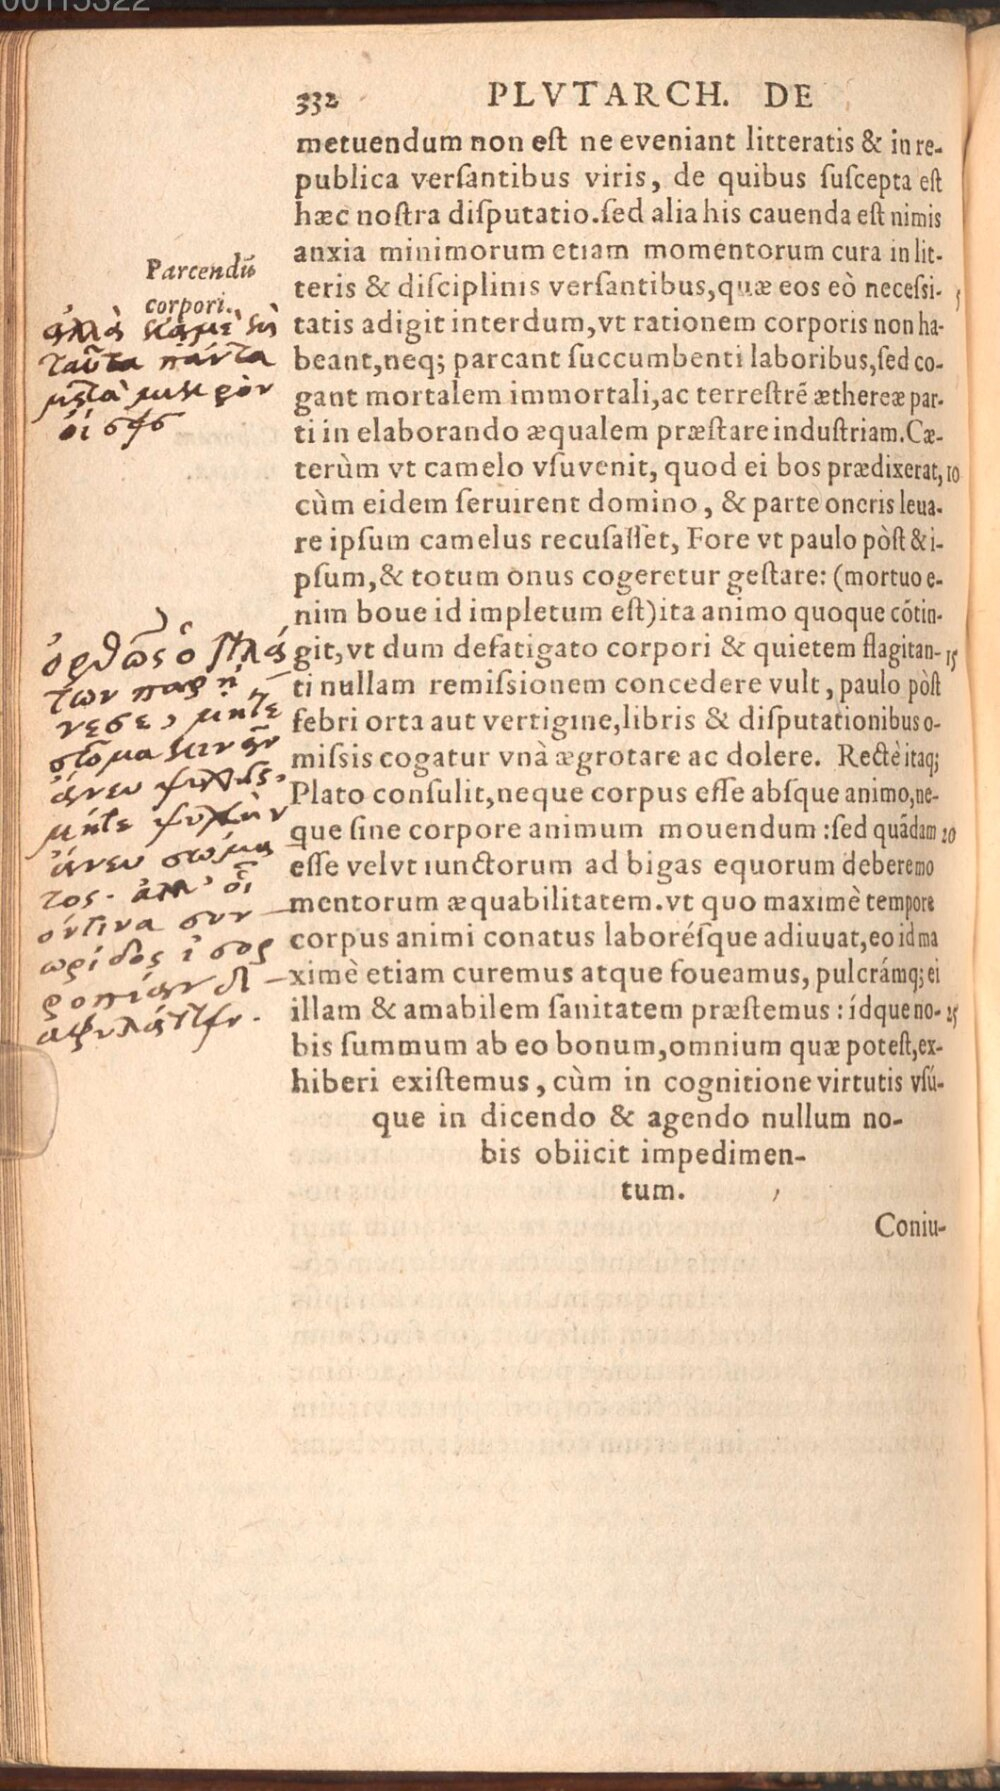 00115322
332 PLVTARCH. DE
metuendum non eſt ne eveniant litteratis & in re-
publica verſantibus viris, de quibus ſuſcepta eſt
hæc noſtra diſputatio. ſed alia his cauenda eſt nimis
anxia minimorum etiam momentorum cura in lit-
teris & diſciplinis verſantibus, quæ eos eò neceſsi- 5
tatis adigit interdum, vt rationem corporis non ha-
beant, neq; parcant ſuccumbenti laboribus, ſed co-
gant mortalem immortali, ac terreſtrē æthereæ par-
ti in elaborando æqualem præſtare induſtriam. Cæ-
terùm vt camelo vſuvenit, quod ei bos prædixerat, 10
cùm eidem ſeruirent domino, & parte oneris leua-
re ipſum camelus recuſaſſet, Fore vt paulo pòſt & i-
pſum, & totum onus cogeretur geſtare: (mortuo e-
nim boue id impletum eſt) ita animo quoque cōtin-
git, vt dum defatigato corpori & quietem flagitan- 15
ti nullam remiſsionem concedere vult, paulo pòſt
febri orta aut vertigine, libris & diſputationibus o-
miſsis cogatur vnà ægrotare ac dolere. Rectè itaq;
Plato conſulit, neque corpus eſſe abſque animo, ne-
que ſine corpore animum mouendum: ſed quādam 20
eſſe velvt iunctorum ad bigas equorum deberemo
mentorum æquabilitatem. vt quo maximè tempore
corpus animi conatus laboréſque adiuuat, eo id ma
ximè etiam curemus atque foueamus, pulcrámq; ei
illam & amabilem ſanitatem præſtemus: ídque no- 25
bis ſummum ab eo bonum, omnium quæ poteſt, ex-
hiberi exiſtemus, cùm in cognitione virtutis vſú-
que in dicendo & agendo nullum no-
bis obiicit impedimen-
tum.
Coniu-
Parcendū
corpori.
ἀλλὰ κἀμὲ καὶ
ταῦτα πάντα
μετὰ μικρὸν
ὀρθῶς ὁ πλά
των παρῄ
νεσε, μήτε
σῶμα κινεῖν
ἄνευ ψυχῆς,
μήτε ψυχὴν
ἄνευ σώμα
τος. ἀλλ' οἷ
όντινα συν
ωρίδος ἰσορ
ροπίαν δι
αφυλάττειν.